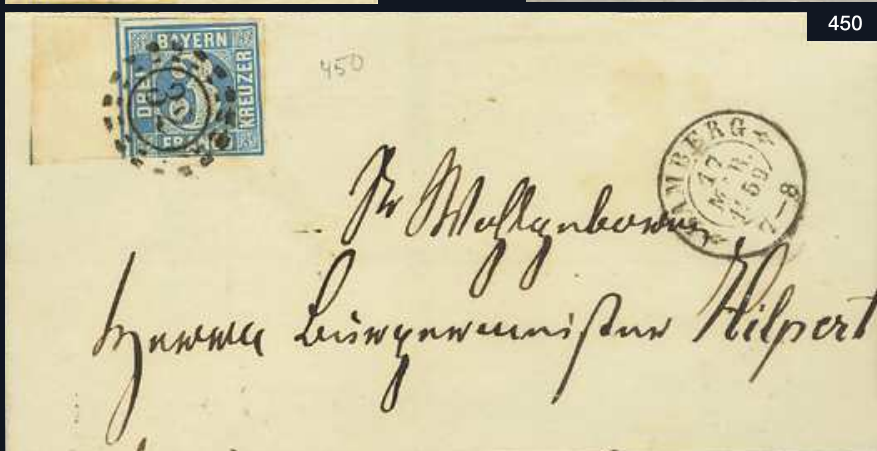 450
BAYERN
DREI
KREUZER
FRANCO
450
BAMBERG
17
MÄR.
1869
7-8
Sr Wohlgeboren
Herrn Bürgermeister Hilpert